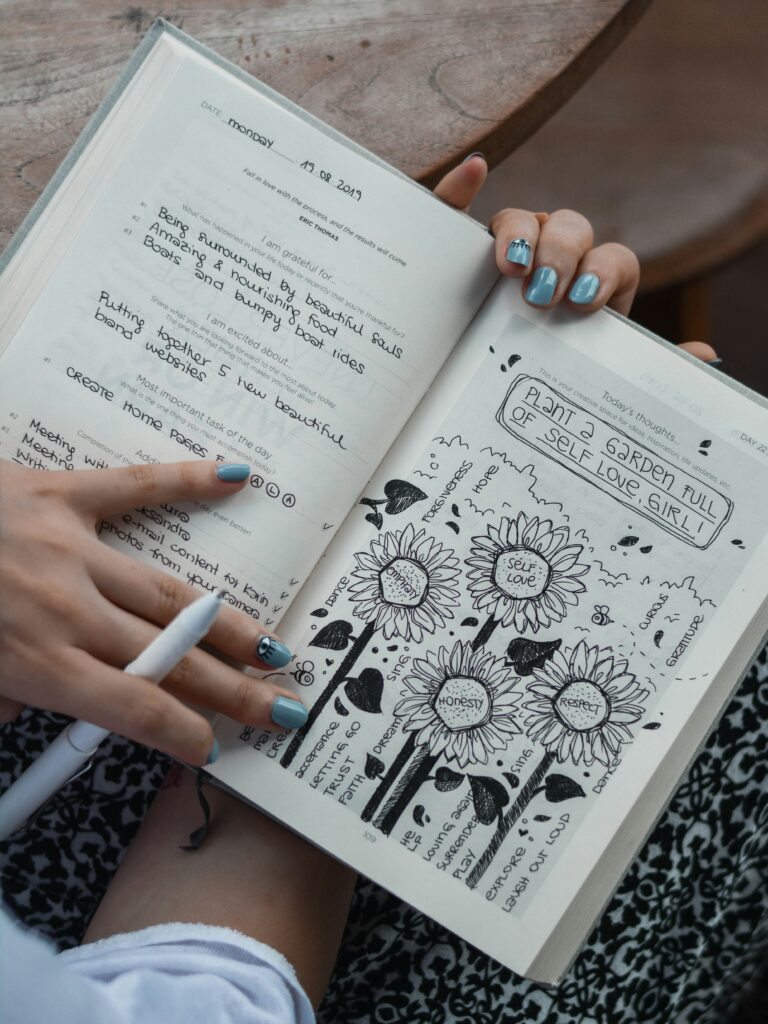 DATE: monday 19.08.2019
Fall in love with the process, and the results will come.
ERIC THOMAS
I am grateful for...
What has happened in your life today or recently that you're thankful for?
#1 Being surrounded by beautiful souls
#2 Amazing & nourishing food
#3 Boats and bumpy boat rides
I am excited about...
Share what you are looking forward to the most about today.
The one thing that makes you feel alive!
Putting together 5 new beautiful
bland websites
Most important task of the day
What is the one thing you must accomplish today?
#1 CREATE HOME PAGES
A L A
Completion of
day even better!
#2 Meeting with
#3 Meeting
e-mail content for Karin
photos from your camera
Today's thoughts...
This is your creative space for ideas, inspiration, life updates, etc.
DAY 22
PLANT A GARDEN FULL
OF SELF LOVE, GIRL!
FORGIVENESS
HOPE
SELF
LOVE
DANCE
SING
CURIOUS
GRATITUDE
HONESTY
RESPECT
acceptance
LETTING GO
TRUST
FAITH
Dream
SING
Dance
HELP
LOVING AGAIN
SURRENDER
PLAY
EXPLORE
LAUGH OUT LOUD
109